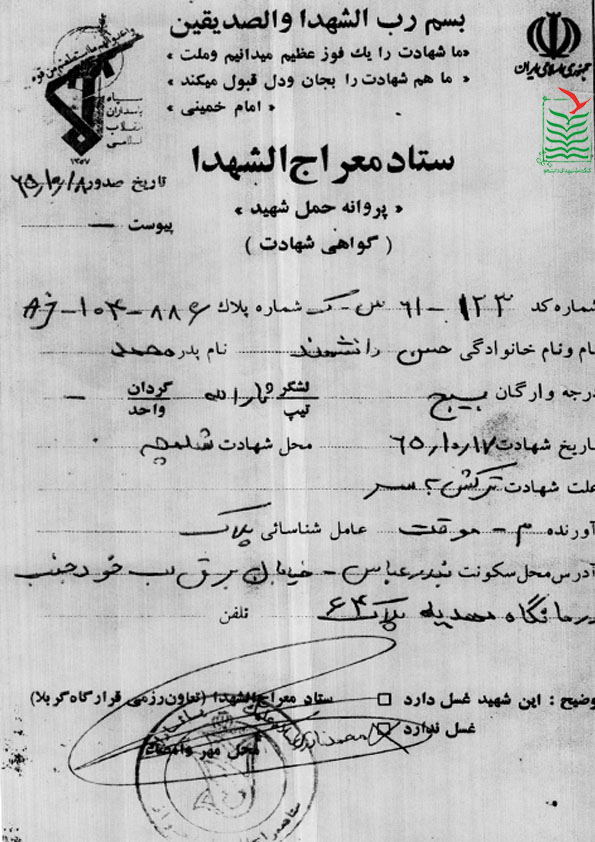 بسم رب الشهدا والصدیقین
«ما شهادت را یك فوز عظیم میدانیم وملت
ما هم شهادت را بجان ودل قبول میکند»
«امام خمینی»
جمهوری اسلامی ایران
سپاه
پاسداران
انقلاب
اسلامی
۱۳۵۷
ستاد معراج الشهدا
تاریخ صدور ۶۵/۱۰/۱۸
«پروانه حمل شهید»
پیوست —
(گواهی شهادت)
شماره کد ۱۲۳ - ۶۱ شماره پلاك ۸۸۶ - ۱۰۴ - AJ
نام و نام خانوادگی حسن دانشمند نام پدر محمد
درجه وارگان بسیج لشگر تیپ ثارالله گردان واحد -
تاریخ شهادت ۶۵/۱۰/۱۷ محل شهادت شلمچه
علت شهادت ترکش به سر
آورنده م - موقت عامل شناسائی پلاک
آدرس محل سکونت بندرعباس - خیابان برق جنب
درمانگاه مهدیه پلاک ۶۴ تلفن
توضیح : این شهید غسل دارد □ ستاد معراج الشهدا (تعاون رزمی قرارگاه کربلا)
غسل ندارد □
محل مهر وامضاء